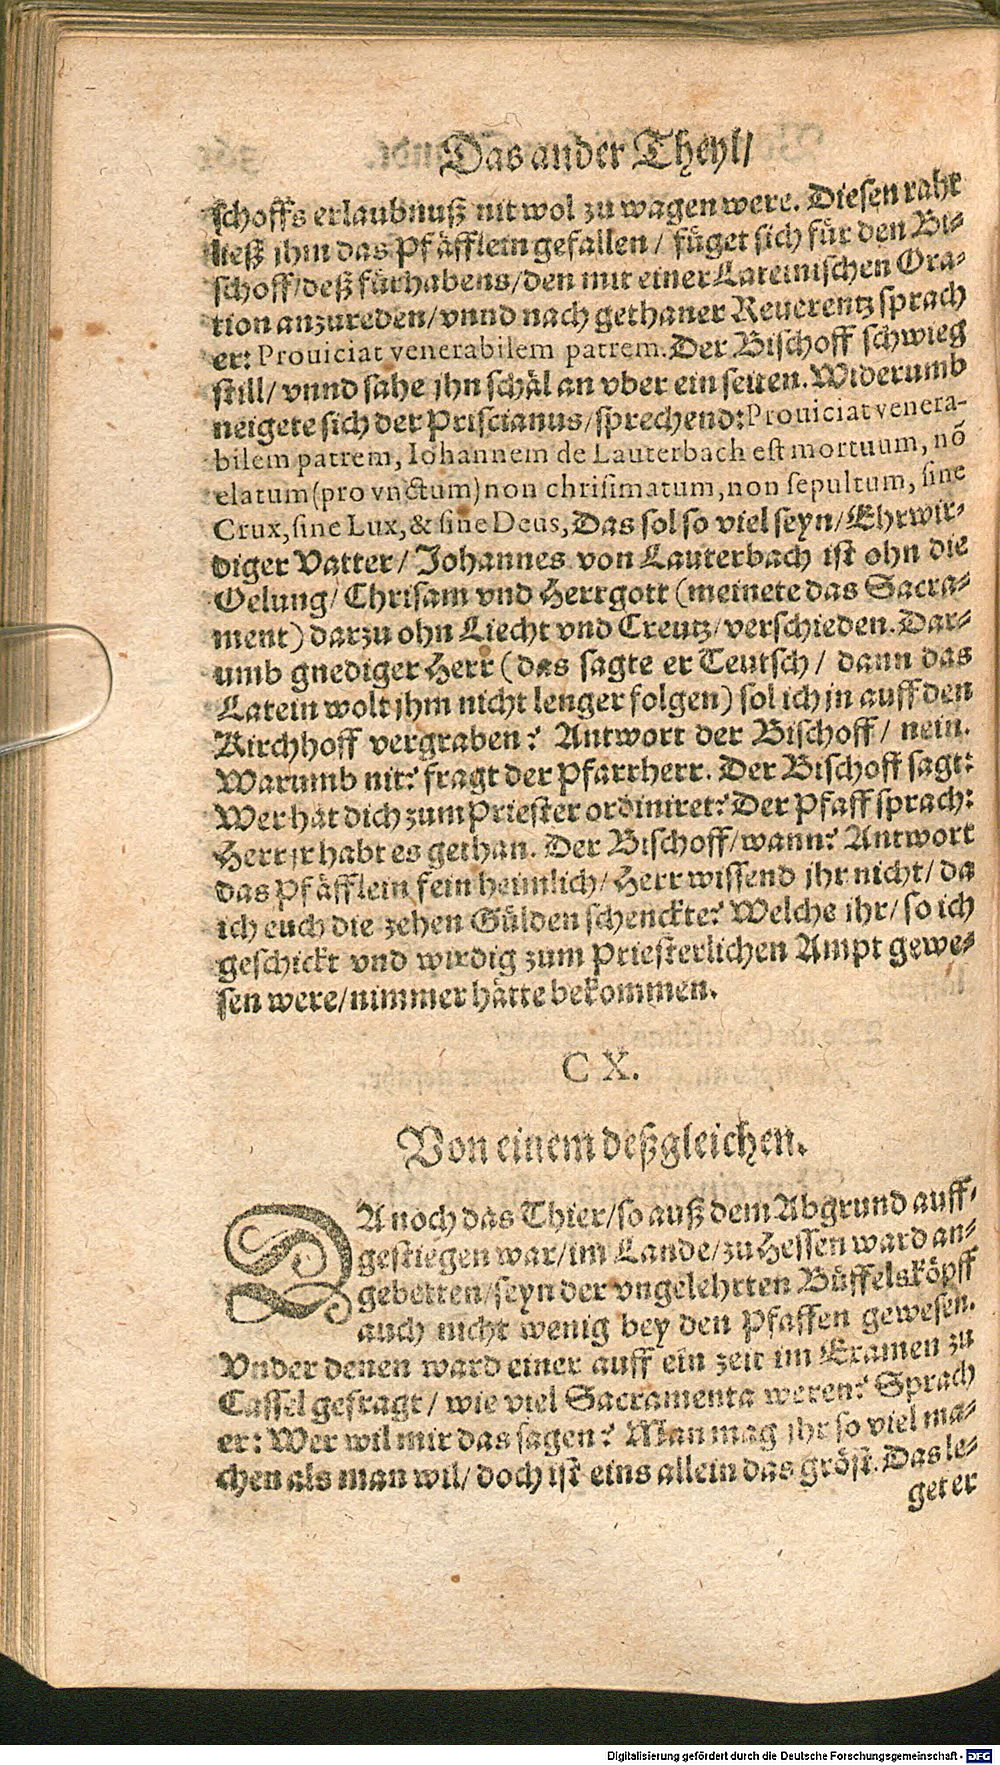 Das ander Theyl/
schoffs erlaubnuß nit wol zu wagen were. Diesen raht
ließ jhm das Pfäfflein gefallen / füget sich für den Bi-
schoff/deß fürhabens/den mit einer Lateinischen Ora-
tion anzureden/vnnd nach gethaner Reuerentz sprach
er: Prouiciat venerabilem patrem. Der Bischoff schwieg
still/ vnnd sahe jhn schäl an vber ein seiten. Widerumb
neigete sich der Priscianus/sprechend: Prouiciat venera-
bilem patrem, Iohannem de Lauterbach est mortuum, nō
elatum(pro vnctum)non chrisimatum,non sepultum, sine
Crux,sine Lux,& sine Deus, Das sol so viel seyn/ Ehrwir-
diger Vatter/ Johannes von Lauterbach ist ohn die
Oelung/ Chrisam vnd Herrgott (meinete das Sacra-
ment) darzu ohn Liecht vnd Creutz/verschieden. Dar-
umb gnediger Herr (das sagte er Teutsch / dann das
Latein wolt jhm nicht lenger folgen) sol ich jn auff den
Kirchhoff vergraben? Antwort der Bischoff/ nein.
Warumb nit? fragt der Pfarrherr. Der Bischoff sagt:
Wer hat dich zum Priester ordiniret? Der Pfaff sprach:
Herr jr habt es gethan. Der Bischoff/wann? Antwort
das Pfäfflein fein heimlich/ Herr wissend jhr nicht/ da
ich euch die zehen Gülden schenckte? Welche ihr/ so ich
geschickt vnd wirdig zum Priesterlichen Ampt gewe-
sen were/nimmer hätte bekommen.
C X.
Von einem deßgleichen.
DA noch das Thier/so auß dem Abgrund auff-
gestiegen war/im Lande/zu Hessen ward an-
gebetten/seyn der vngelehrten Büffelsköpff
auch nicht wenig bey den Pfaffen gewesen.
Vnder denen ward einer auff ein zeit im Examen zu
Cassel gefragt / wie viel Sacramenta weren? Sprach
er: Wer wil mir das sagen? Man mag jhr so viel ma-
chen als man wil/ doch ist eins allein das gröst. Das le-
get er
Digitalisierung gefördert durch die Deutsche Forschungsgemeinschaft - DFG